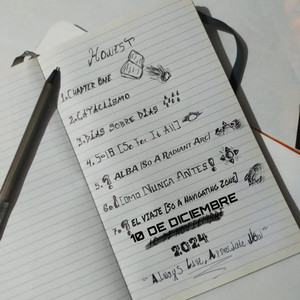 HONEST
1. CHAPTER ONE
2. CATACLISMO
3. DÍAS SOBRE DÍAS
4. 5-18 [SO FAR IT ALL]
5. ALBA [SO A RADIANT ARC]
6. ¿[COMO NUNCA ANTES?
7. EL VIAJE [SO A NAVIGATING ZONE]
10 DE DICIEMBRE
2024